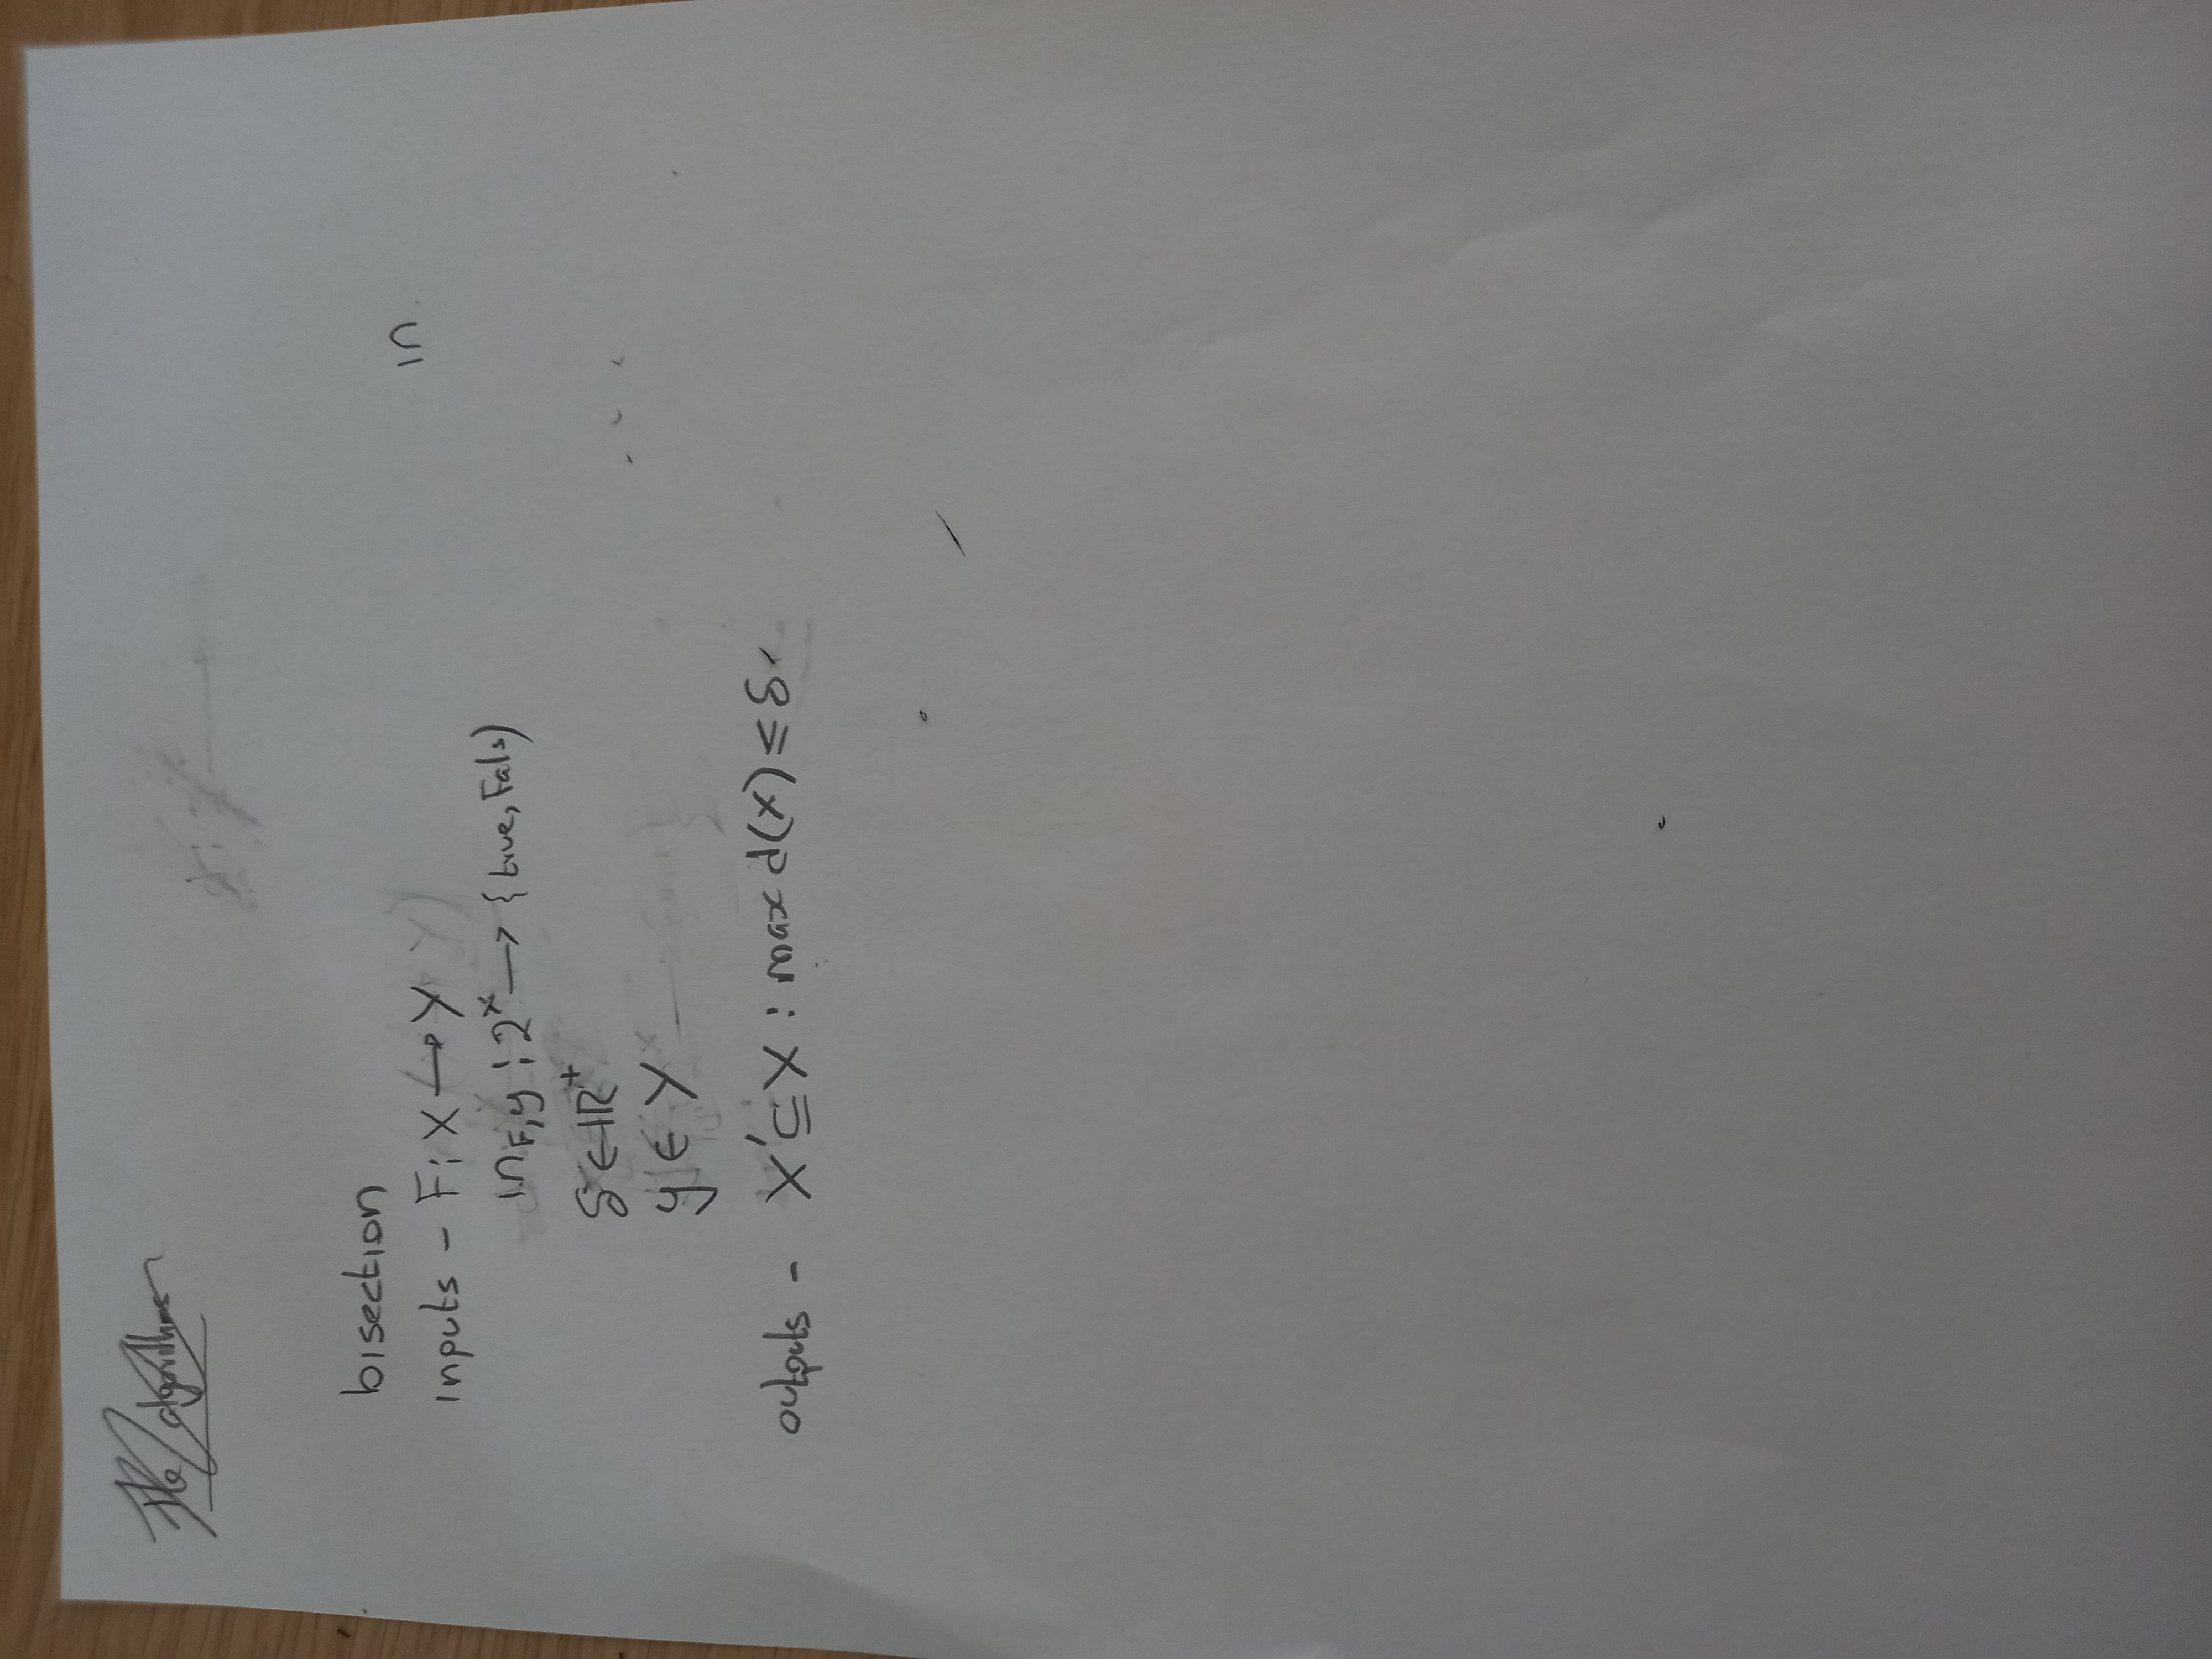 The algorithms
bisection
in
inputs - F: X → Y
in_F,y : 2^x → {true, Fals)
δ ∈ ℝ^+
y ∈ Y
outputs - X' ⊆ X : max d(x) ≤ δ